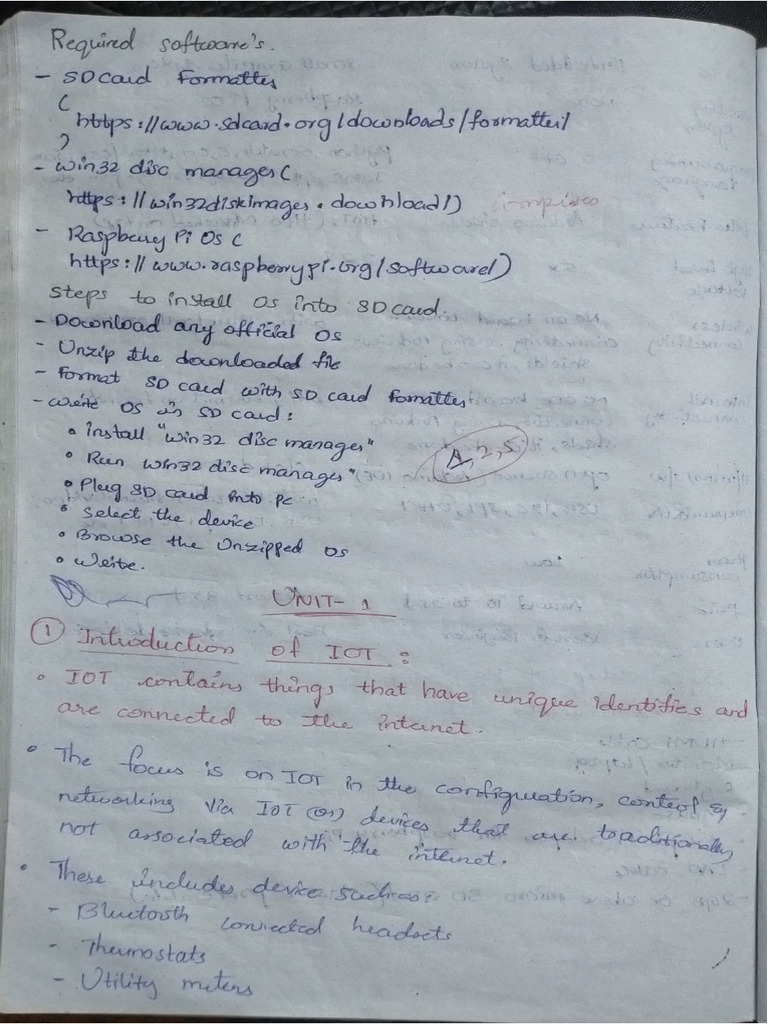 Required software's.
- SD card Formatter
(
https://www.sdcard.org/downloads/formatter/
)
- win32 disc manager (
https://win32diskimages.download/)
- Raspberry Pi OS (
https://www.raspberrypi.org/software/)
steps to install OS into SD card.
- Download any official OS
- Unzip the downloaded file
- Format SD card with SD card formatter
- write OS in SD card:
• install "win32 disc manager"
• Run win32 disc manager"
• Plug SD card into pc
• Select the device
• Browse the Unzipped OS
• Write.
1, 2, 5
UNIT-1
① Introduction of IOT :
• IOT contains things that have unique identifies and
are connected to the internet.
• The focus is on IOT in the configuration, control &
networking via IOT (or) devices that are traditionally
not associated with the internet.
• These includes device such as:
- Bluetooth connected headsets
- Thermostats
- Utility meters